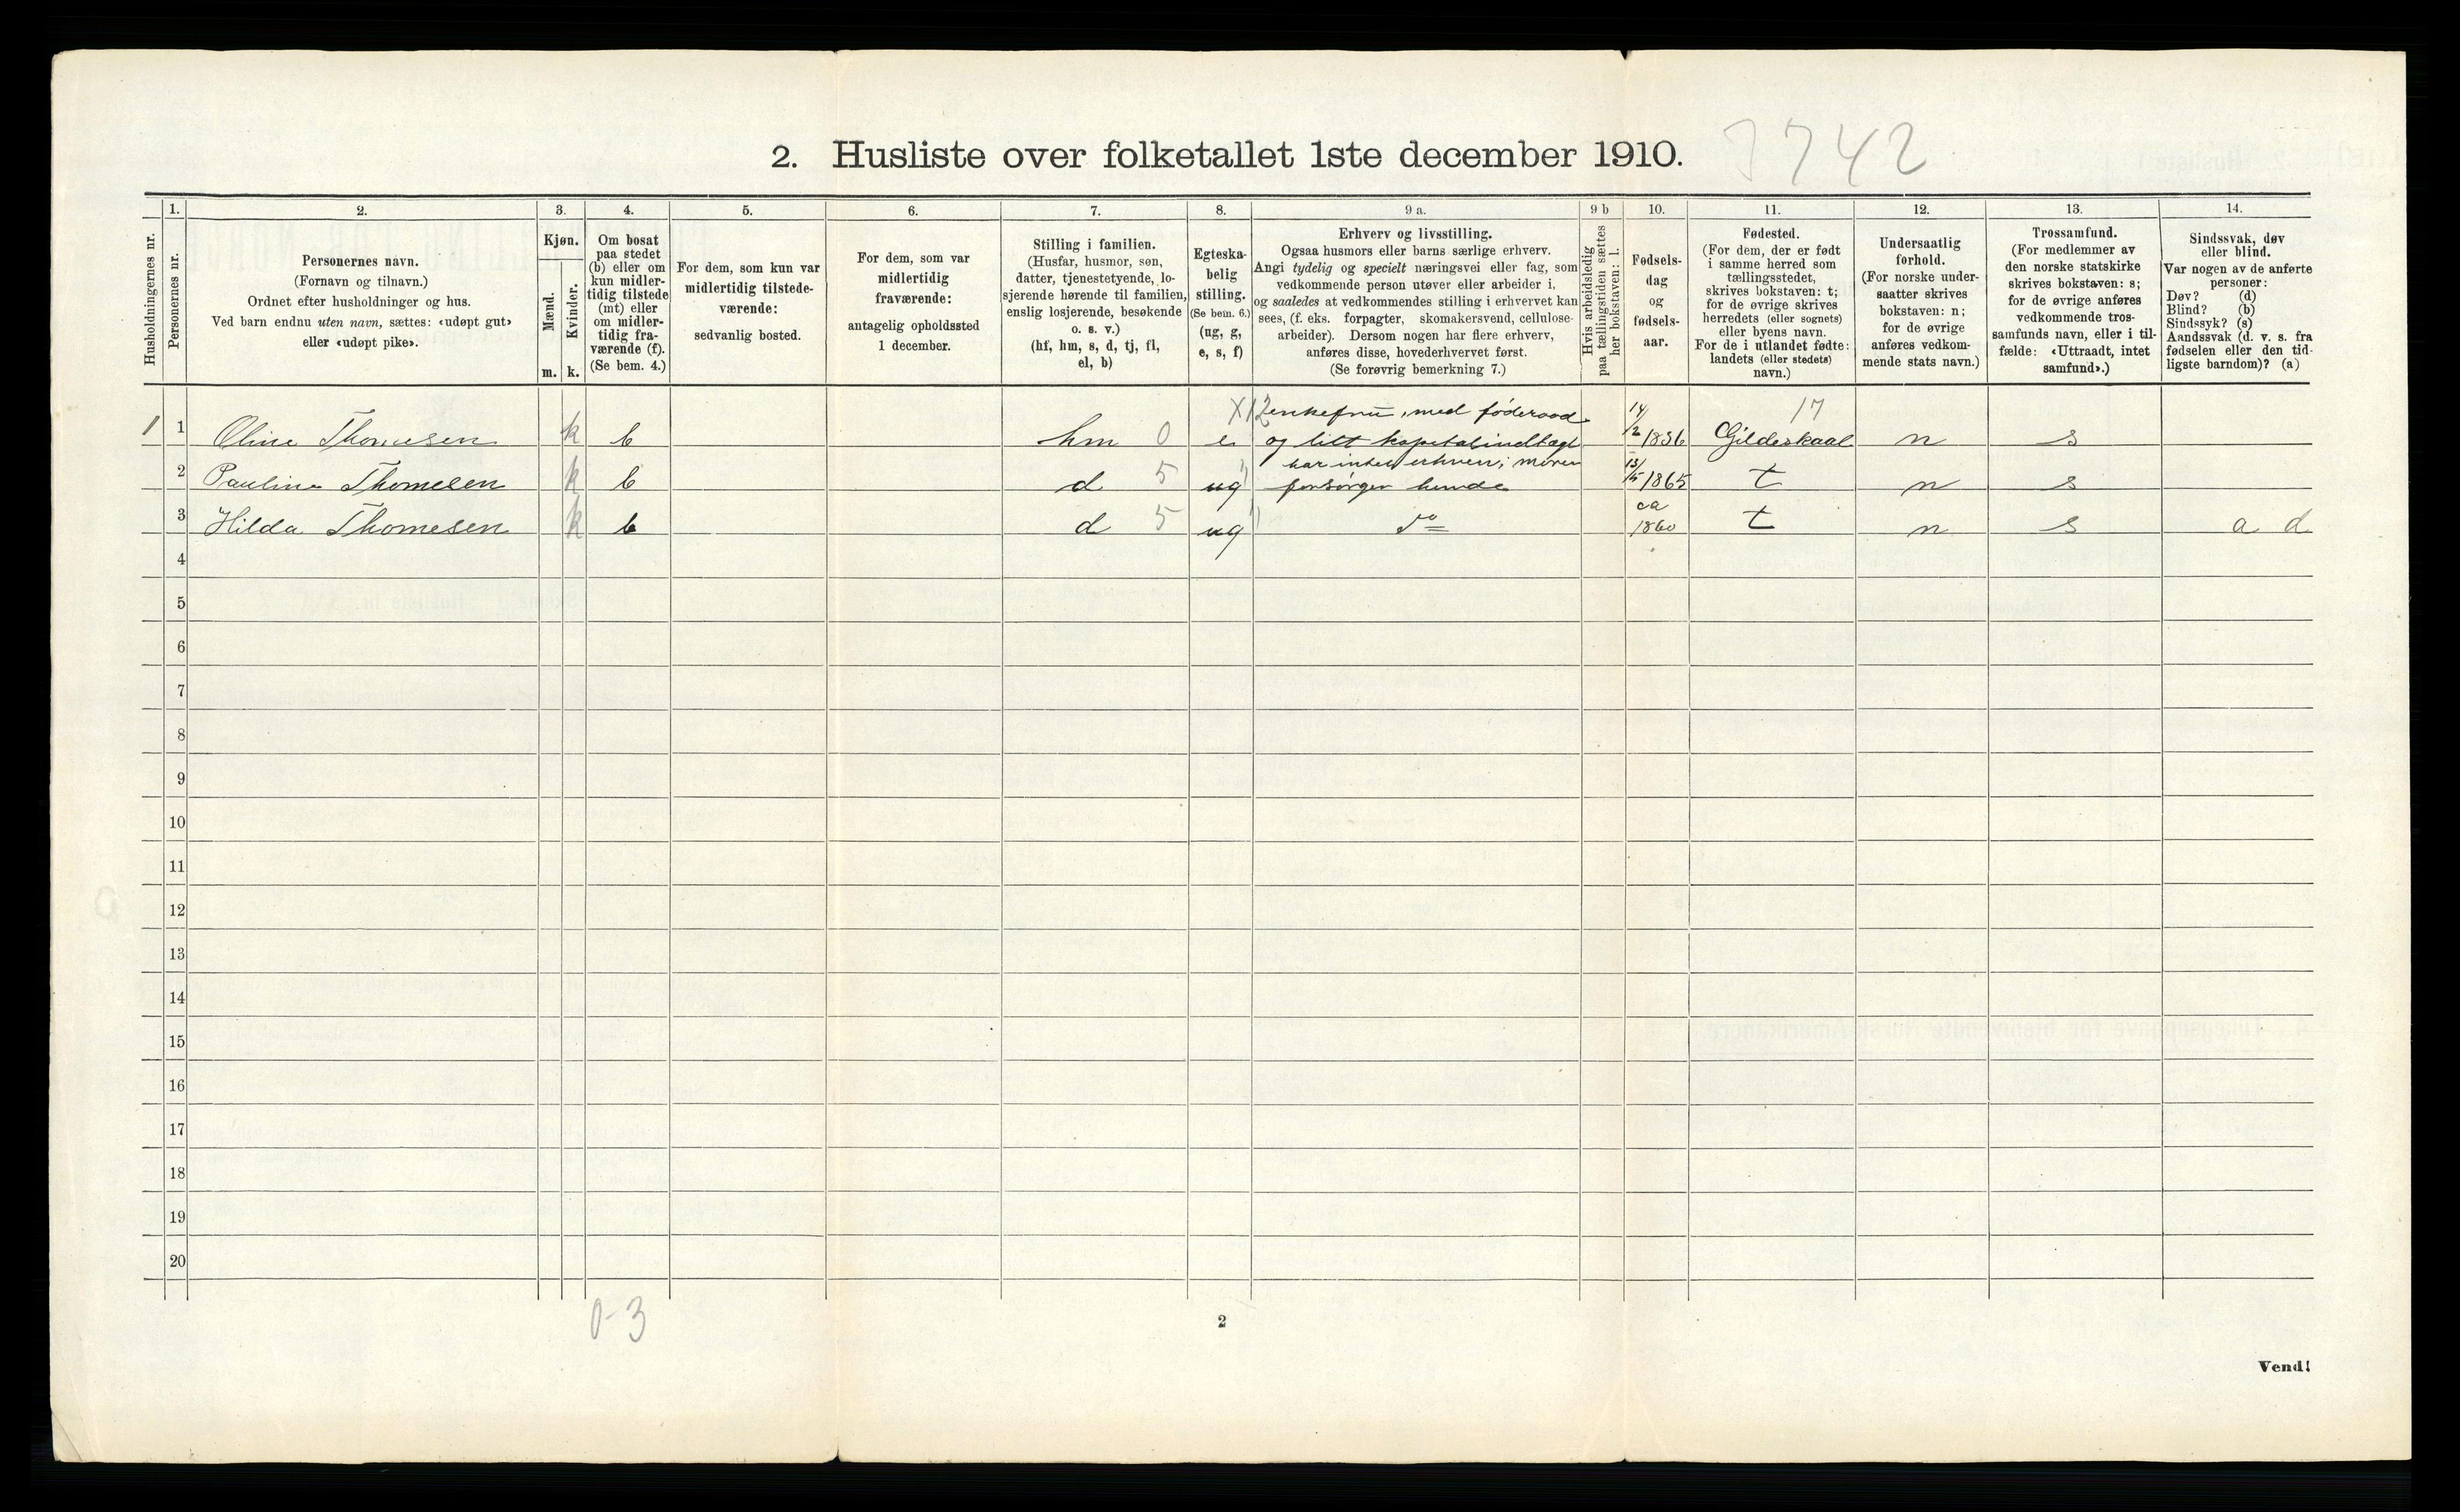 2. Husliste over folketallet 1ste december 1910. 7742
Husholdningernes nr.
1.
Personernes nr.
2.
Personernes navn.
(Fornavn og tilnavn.)
Ordnet efter husholdninger og hus.
Ved barn endnu uten navn, sættes: «udøpt gut»
eller «udøpt pike».
3.
Kjøn.
Mænd.
Kvinder.
m. k.
4.
Om bosat
paa stedet
(b) eller om
kun midler-
tidig tilstede
(mt) eller
om midler-
tidig fra-
værende (f).
(Se bem. 4.)
5.
For dem, som kun var
midlertidig tilstede-
værende:
sedvanlig bosted.
6.
For dem, som var
midlertidig
fraværende:
antagelig opholdssted
1 december.
7.
Stilling i familien.
(Husfar, husmor, søn,
datter, tjenestetyende, lo-
sjerende hørende til familien,
enslig losjerende, besøkende
o. s. v.)
(hf, hm, s, d, tj, fl,
el, b)
8.
Egteska-
belig
stilling.
(Se bem. 6.)
(ug, g,
e, s, f)
9 a.
Erhverv og livsstilling.
Ogsaa husmors eller barns særlige erhverv.
Angi tydelig og specielt næringsvei eller fag, som
vedkommende person utøver eller arbeider i,
og saaledes at vedkommendes stilling i erhvervet kan
sees, (f. eks. forpagter, skomakersvend, cellulose-
arbeider). Dersom nogen har flere erhverv,
anføres disse, hovederhvervet først.
(Se forøvrig bemerkning 7.)
9 b
Hvis arbeidsledig
paa tællingstiden sættes
her bokstaven: l.
10.
Fødsels-
dag
og
fødsels-
aar.
11.
Fødested.
(For dem, der er født
i samme herred som
tællingsstedet,
skrives bokstaven: t;
for de øvrige skrives
herredets (eller sognets)
eller byens navn.
For de i utlandet fødte:
landets (eller stedets)
navn.)
12.
Undersaatlig
forhold.
(For norske under-
saatter skrives
bokstaven: n;
for de øvrige
anføres vedkom-
mende stats navn.)
13.
Trossamfund.
(For medlemmer av
den norske statskirke
skrives bokstaven: s;
for de øvrige anføres
vedkommende tros-
samfunds navn, eller i til-
fælde: «Uttraadt, intet
samfund».)
14.
Sindssvak, døv
eller blind.
Var nogen av de anførte
personer:
Døv? (d)
Blind? (b)
Sindssyk? (s)
Aandssvak (d. v. s. fra
fødselen eller den tid-
ligste barndom)? (a)
X12 enkefru, med föderaad 14/ 17
1 1 Oline Thomesen k b hm 0 e og litt kapitalindtægt 2 1836 Gildeskaal n s
har intet erhverv; moren 13/
2 Pauline Thomesen k b d 5 ug forsörger hende 5 1865 t n s
ca
3 Hilda Thomesen k b d 5 ug do 1860 t n s a d
4
5
6
7
8
9
10
11
12
13
14
15
16
17
18
19
20
0-3
2
Vend!